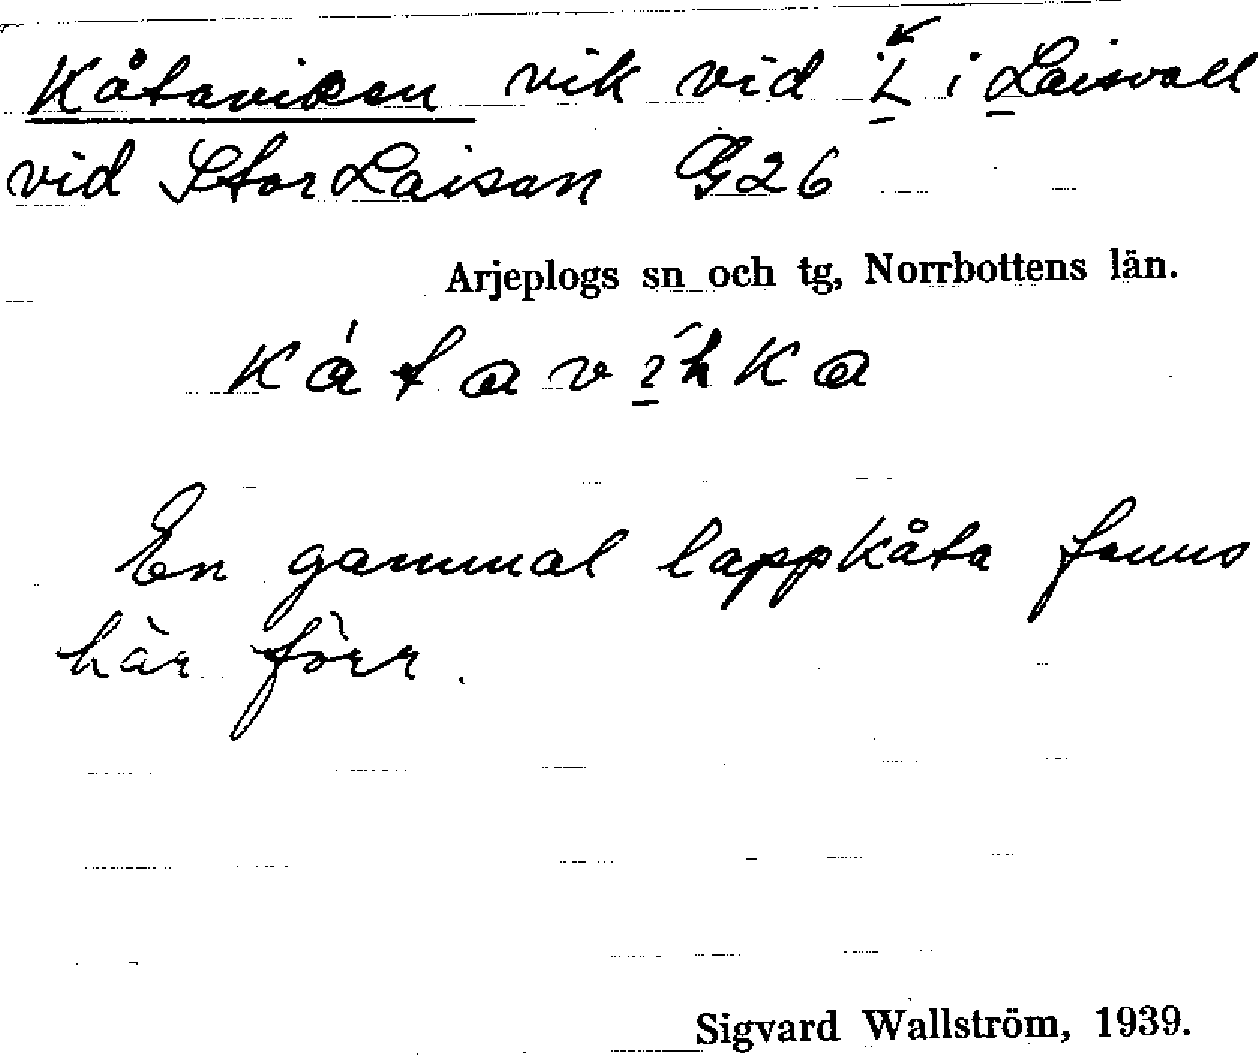 Kåtaviken vik vid L i Laisvall
vid Stor Laisan G26
Arjeplogs sn och tg, Norrbottens län.
En gammal lappkåta fanns
här förr.
Sigvard Wallström, 1939.